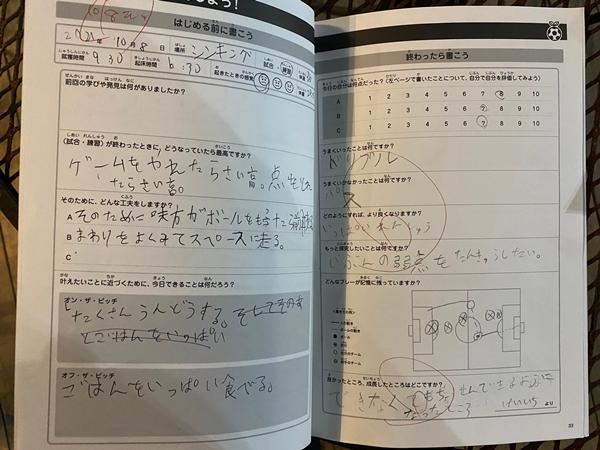 しよう!
はじめる前に書こう
2021年 10月 8日 場所 シンキング 試合・練習
就寝時間 9:30 起床時間 6:30 起きたときの感覚
前回の学びや発見は何がありましたか?
(試合・練習)が終わったときに、どうなっていたら最高ですか?
ゲームをやれたらさい高。点をとれ
たらさい高。
そのために、どんな工夫をしますか?
A そのために味方がボールをもった瞬間
B まわりをよくみてスペースに走る。
C
叶えたいことに近づくために、今日できることは何だろう?
オン・ザ・ピッチ
たくさんうんどうする。
とごはんをいっぱい
オフ・ザ・ピッチ
ごはんをいっぱい食べる。
終わったら書こう
今日の自分は何点だった?(左ページで書いたことについて、自分で自分を評価してみよう)
A 1 2 3 4 5 6 7 8 9 10
B 1 2 3 4 5 6 7 8 9 10
C 1 2 3 4 5 6 7 8 9 10
うまくいったことは何ですか?
ドリブル
うまくいかなかったことは何ですか?
パス
どのようにすれば、より良くなりますか?
いっぱいれんしゅう
もっと探究したいことは何ですか?
じぶんの弱点をたんきゅうしたい。
どんなプレーが記憶に残っていますか?
良かったところ、成長したところはどこですか?
できなくても
なったところ
けいいち より
33